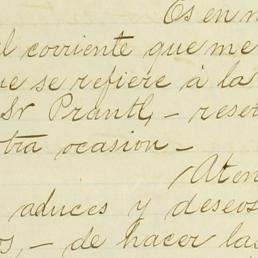 Os en m
il corriente que me
ue se refiere á la
Sr Prantl, – reser
tra ocasion –
(Aten
aduces y deseos
os, – de hacer las